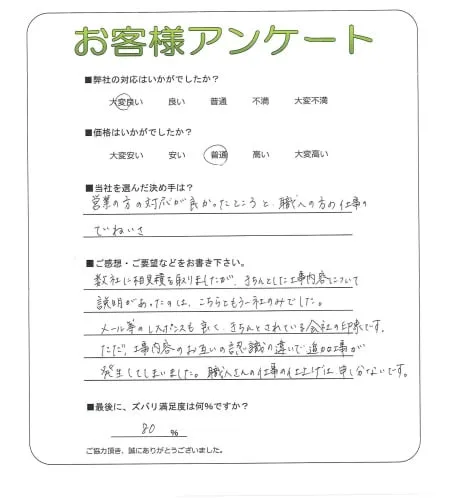 お客様アンケート
■弊社の対応はいかがでしたか？
大変良い 良い 普通 不満 大変不満
■価格はいかがでしたか？
大変安い 安い 普通 高い 大変高い
■当社を選んだ決め手は？
営業の方の対応が良かったところと、職人の方の仕事の
ていねいさ
■ご感想・ご要望などをお書き下さい。
数社に相見積を取りましたが、きちんとした工事内容について
説明があったのは、こちらともう一社のみでした。
メール等のレスポンスも良く、きちんとされている会社の印象です。
ただ、工事内容のお互いの認識の違いで追加工事が
発生してしまいました。職人さんの仕事の仕上げは申し分ないです。
■最後に、ズバリ満足度は何%ですか？
80 %
ご協力頂き、誠にありがとうございました。